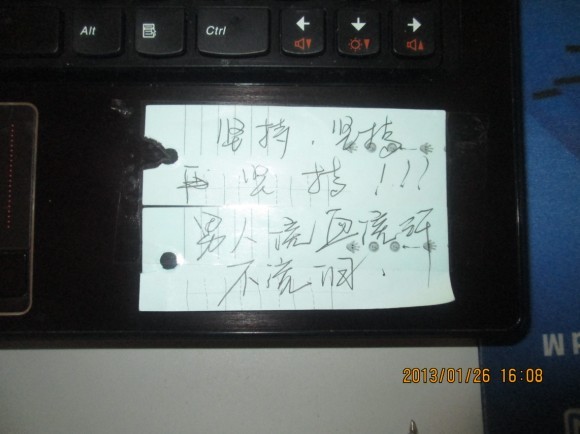 Alt Ctrl
坚持，坚持
再坚持！！！
男人流血流汗
不流泪．
2013/01/26 16:08